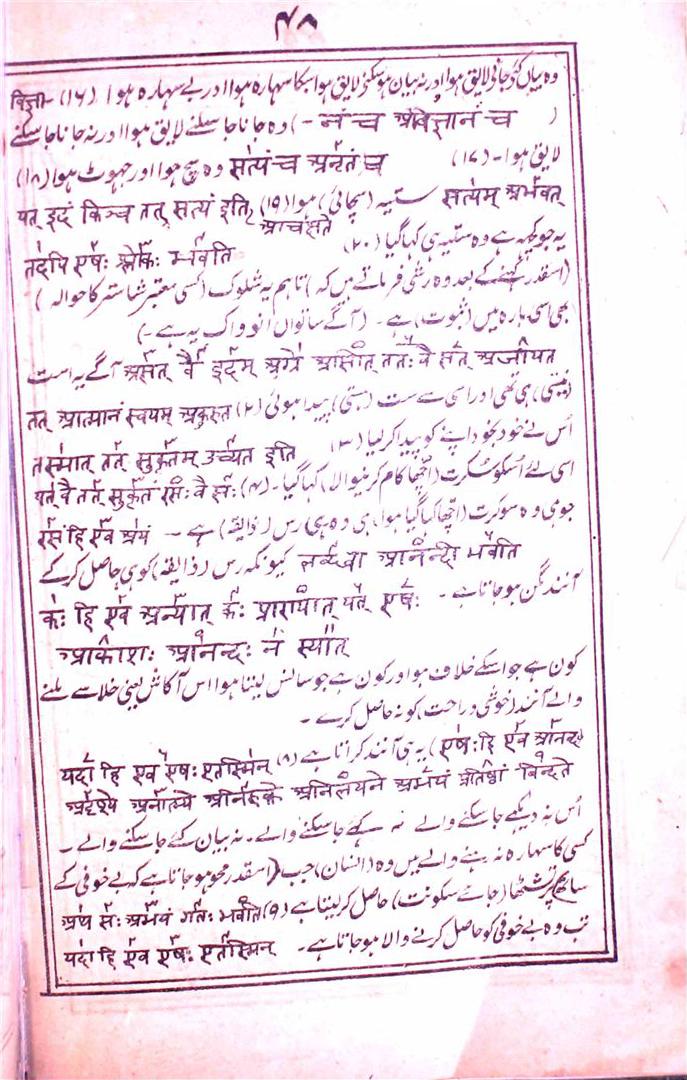 ۴۸
وہ بیان کئے جانے لایق ہوا اور نہ بیان ہو سکنے لایق ہوا سکا سہارہ ہوا اور بے سہارہ ہوا (۱۶) विज्ञा-
नं च अविज्ञानं च -) وہ جانا جا سکنے لایق ہوا اور نہ جانا جا سکنے
لایق ہوا - (۱۷) सत्यं च अनृतं च وہ سچ ہوا اور جھوٹ ہوا (۱۸)
सत्यम् अभवत् ستیہ (سچائی) ہوا (۱۹) यत् इदं किञ्च तत् सत्यं इति आचक्षते
یہ جو کچھ ہے وہ ستیہ ہی کہا گیا (۲۰) तदपि एषः श्लोकः भवति
(اسقدر کہنے کے بعد وہ رشی فرماتے ہیں کہ) تاہم یہ شلوک (کسی معتبر شاستر کا حوالہ)
بھی اسی بارہ میں (ثبوت) ہے - (آگے ساتواں انوواک یہ ہے -)
असत् वै इदम् अग्रे आसीत् ततः वै सत् अजायत آگے یہ است
(نیستی) ہی تھی اور اسی سے ست (ہستی) پیدا ہوئی (۲) तत् आत्मानं स्वयम् अकुरुत
اُس نے خود بخود اپنے کو پیدا کر لیا (۳) तस्मात् तत् सुकृतम् उच्यत इति
اسی لئے اُسکو سُکرت (اچھا کام کرنیوالا) کہا گیا - (۴) यत् वै तत् सुकृतं रसः वै सः
جو ہی وہ سوکرت (اچھا کیا گیا ہوا) ہی وہ ہی رس (ذایقہ) ہے - रसं हि एव अयं
लब्ध्वा आनन्दी भवति کیونکہ رس (ذایقہ) کو ہی حاصل کر کے
آنند مگن ہو جاتا ہے - कः हि एव अन्यात् कः प्राण्यात् यत् एषः
आकाशः आनन्दः न स्यात्
کون ہے جو اسکے خلاف ہو اور کون ہے جو سانس لیتا ہوا اس آکاش یعنی خلا سے ملنے
والے آنند (خوشی و راحت) کو نہ حاصل کرے -
एषः हि एव आनन्द) یہ ہی آنند کراتا ہے (۸) यदा हि एव एषः एतस्मिन्
अदृश्ये अनात्म्ये अनिरुक्ते अनिलयने अभयं प्रतिष्ठां विन्दते
اُس نہ دیکھے جا سکنے والے نہ کہے جا سکنے والے - نہ بیان کئے جا سکنے والے -
کسی کا سہارہ نہ بننے والے میں وہ (انسان) جب (اسقدر محو ہو جاتا ہے کہ بے خوفی کے
ساتھ پرتشٹھا (جائے سکونت) حاصل کر لیتا ہے (९) अथ सः अभयं गतः भवति
تب وہ بے خوفی کو حاصل کرنے والا ہو جاتا ہے - यदा हि एव एषः एतस्मिन्